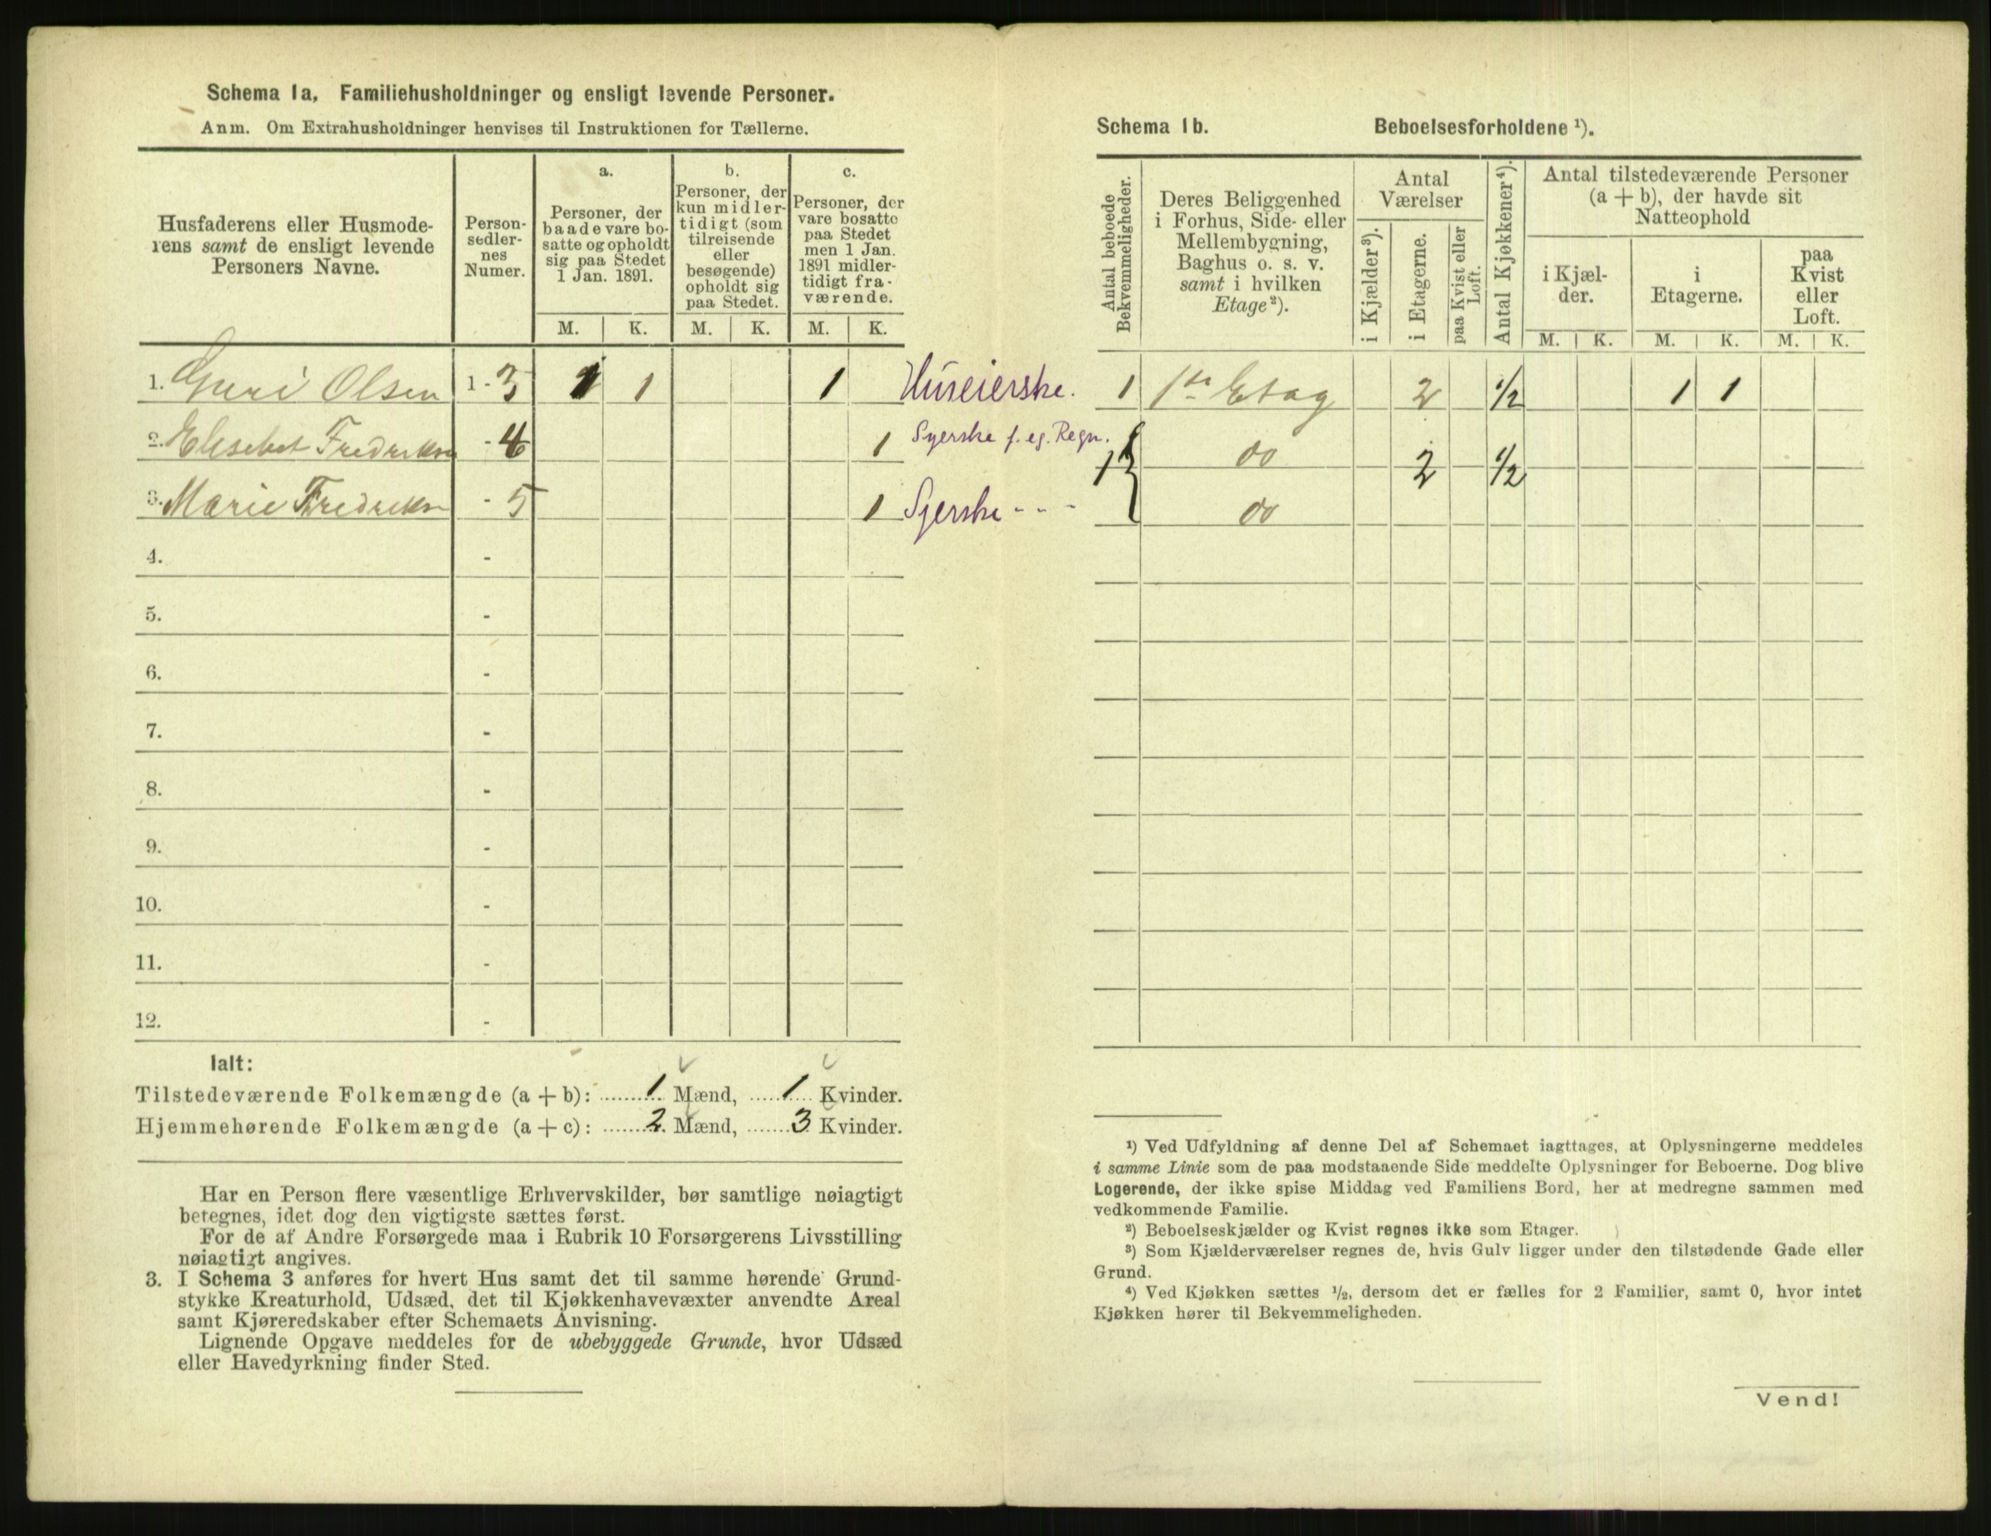 Schema 1a. Familiehusholdninger og ensligt levende Personer.
Anm. Om Extrahusholdninger henvises til Instruktionen for Tællerne.
Husfaderens eller Husmode-
rens samt de ensligt levende
Personers Navne.
Person-
sedler-
nes
Numer.
a.
Personer, der
baade vare bo-
satte og opholdt
sig paa Stedet
1 Jan. 1891.
b.
Personer, der
kun midler-
tidigt (som
tilreisende
eller
besøgende)
opholdt sig
paa Stedet.
c.
Personer, der
vare bosatte
paa Stedet
men 1 Jan.
1891 midler-
tidigt fra-
værende.
M. K. M. K. M. K.
1. Guri Olsen 1 - 3 1 1 1 Huseierske.
2. Elisebet Fredriksen - 4 1 Syerske f. eg. Regn.
3. Marie Fredriksen - 5 1 Syerske - - -
4. -
5. -
6. -
7. -
8. -
9. -
10. -
11. -
12. -
Ialt:
Tilstedeværende Folkemængde (a + b): 1 Mænd, 1 Kvinder.
Hjemmehørende Folkemængde (a + c): 2 Mænd, 3 Kvinder.
Har en Person flere væsentlige Erhvervskilder, bør samtlige nøiagtigt
betegnes, idet dog den vigtigste sættes først.
For de af Andre Forsørgede maa i Rubrik 10 Forsørgerens Livsstilling
nøiagtigt angives.
3. I Schema 3 anføres for hvert Hus samt det til samme hørende Grund-
stykke Kreaturhold, Udsæd, det til Kjøkkenhavevæxter anvendte Areal
samt Kjøreredskaber efter Schemaets Anvisning.
Lignende Opgave meddeles for de ubebyggede Grunde, hvor Udsæd
eller Havedyrkning finder Sted.
Schema 1b. Beboelsesforholdene ¹).
Antal beboede
Bekvemmeligheder.
Deres Beliggenhed
i Forhus, Side- eller
Mellembygning,
Baghus o. s. v.
samt i hvilken
Etage²).
Antal
Værelser
i Kjælder³).
i Etagerne.
paa Kvist eller
Loft.
Antal Kjøkkener⁴).
Antal tilstedeværende Personer
(a + b), der havde sit
Natteophold
i Kjæl-
der.
i
Etagerne.
paa
Kvist
eller
Loft.
M. K. M. K. M. K.
1 1ste Etag 2 1/2 1 1
1 do 2 1/2
do
¹) Ved Udfyldning af denne Del af Schemaet iagttages, at Oplysningerne meddeles
i samme Linie som de paa modstaaende Side meddelte Oplysninger for Beboerne. Dog blive
Logerende, der ikke spise Middag ved Familiens Bord, her at medregne sammen med
vedkommende Familie.
²) Beboelseskjælder og Kvist regnes ikke som Etager.
³) Som Kjælderværelser regnes de, hvis Gulv ligger under den tilstødende Gade eller
Grund.
⁴) Ved Kjøkken sættes ½, dersom det er fælles for 2 Familier, samt 0, hvor intet
Kjøkken hører til Bekvemmeligheden.
Vend!